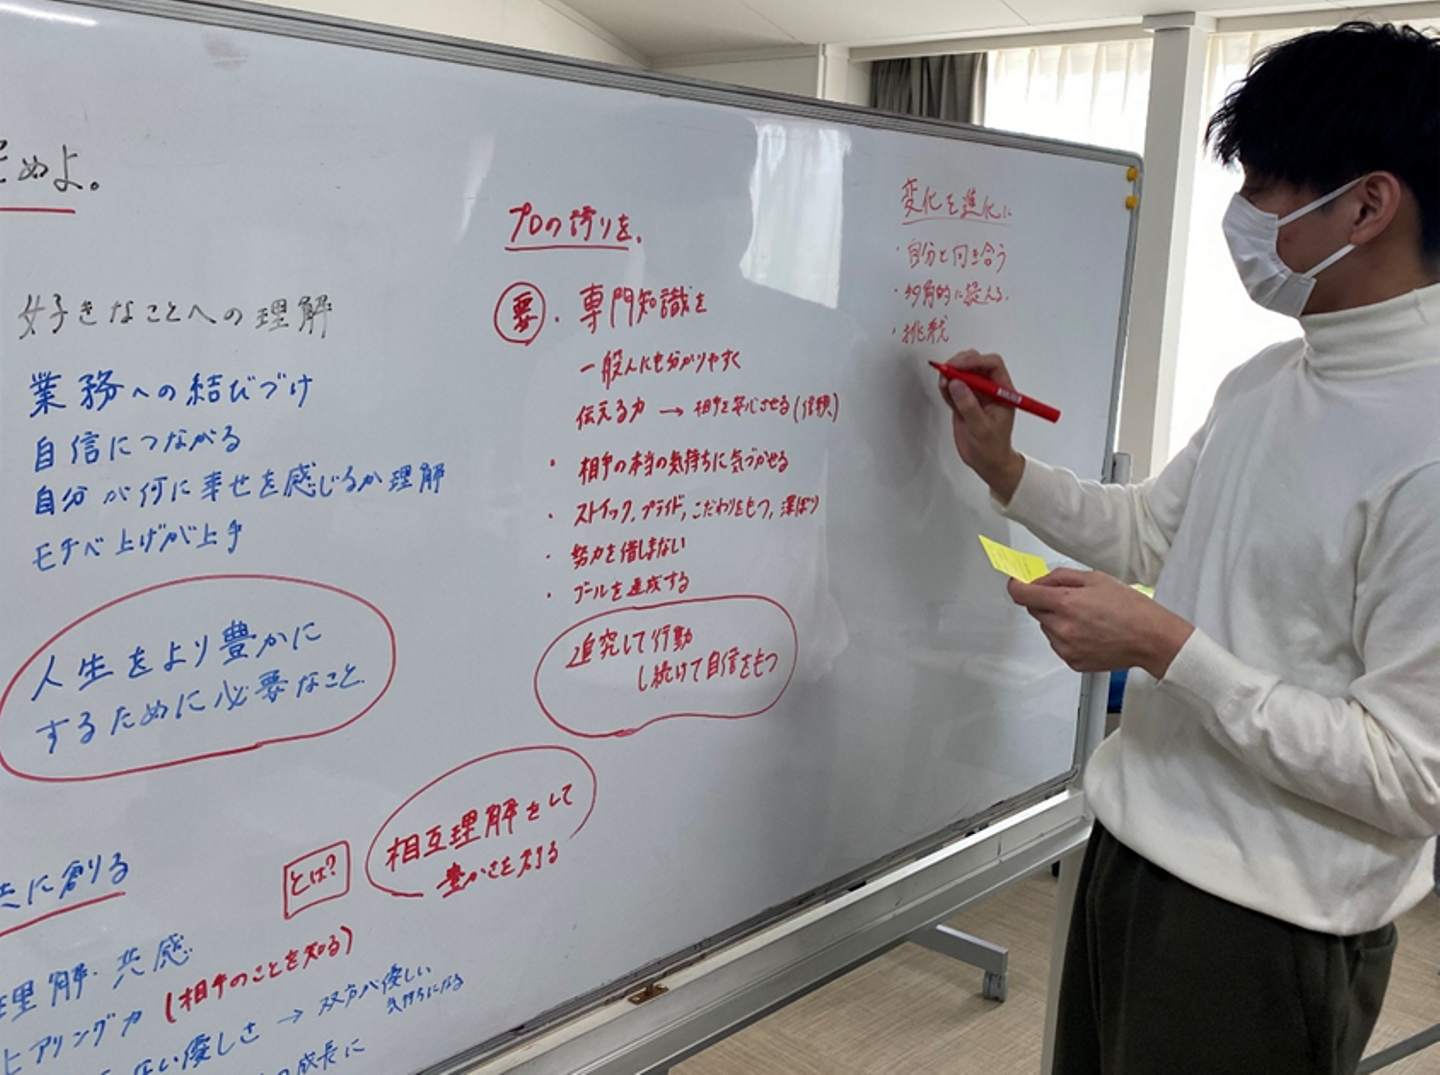 ぬよ。
好きなことへの理解
業務への結びづけ
自信につながる
自分が何に幸せを感じるか理解
モチベ上げが上手
人生をより豊かに
するために必要なこと
共に創る
理解・共感
ヒアリング力(相手のことを知る)
優しさ→双方が優しい
気持ちになる
成長に
とは?
相互理解をして
豊かさを創る
プロの誇りを。
要・専門知識を
一般人にも分かりやすく
伝える力→相手を安心させる(信頼)
・相手の本当の気持ちに気づかせる
・ストイック,プライド,こだわりをもつ,深ぼり
・努力を惜しまない
・ゴールを達成する
追究して行動
し続けて自信をもつ
変化を進化に
・自分と向き合う
・多角的に捉える.
・挑戦